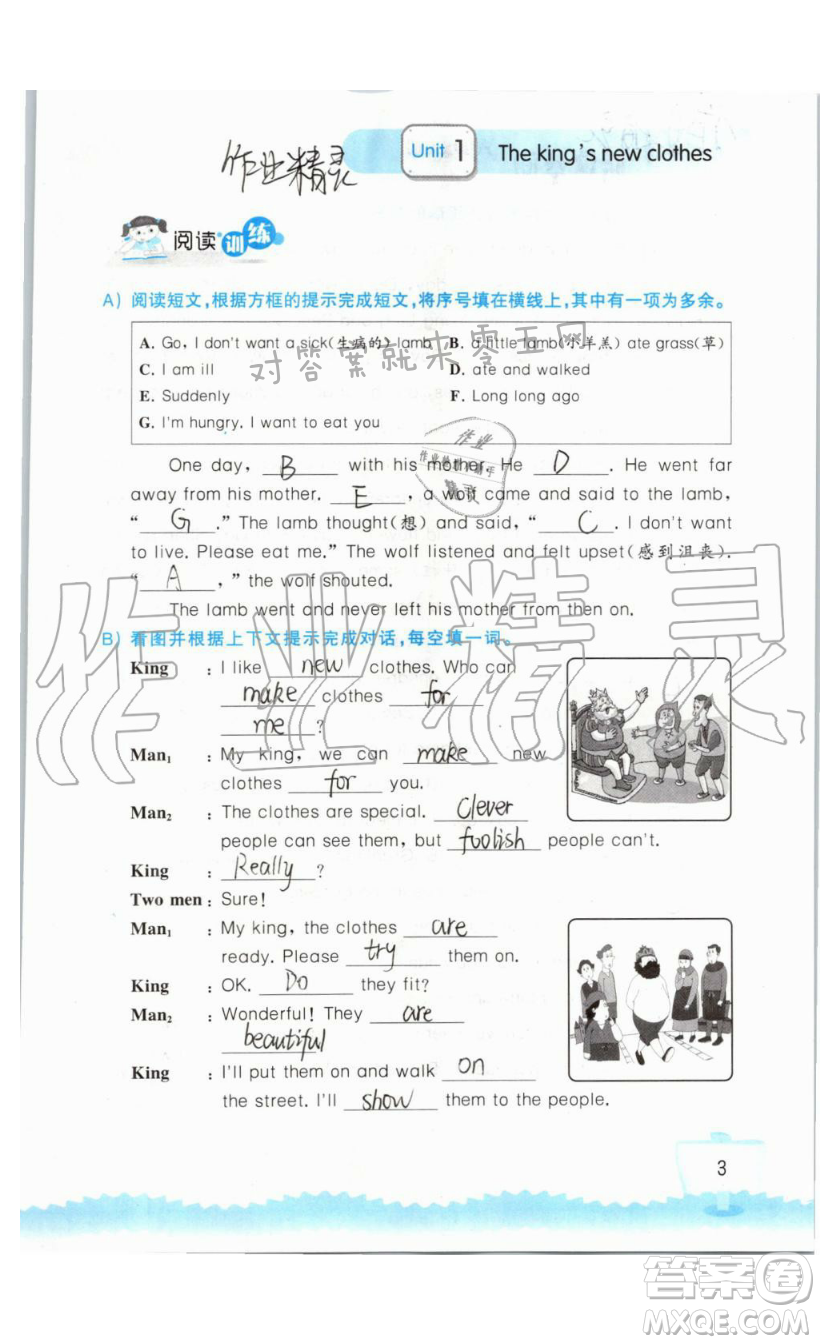 作业精灵
Unit 1 The king's new clothes
阅读训练
A) 阅读短文,根据方框的提示完成短文,将序号填在横线上,其中有一项为多余。
A. Go, I don't want a sick(生病的) lamb B. a little lamb(小羊羔) ate grass(草)
C. I am ill D. ate and walked
E. Suddenly F. Long long ago
G. I'm hungry. I want to eat you
对答案就来零五网
One day, B with his mother. He D. He went far
away from his mother. E, a wolf came and said to the lamb,
“ G .” The lamb thought(想) and said, “ C . I don't want
to live. Please eat me.” The wolf listened and felt upset(感到沮丧).
“ A ,” the wolf shouted.
The lamb went and never left his mother from then on.
B) 看图并根据上下文提示完成对话,每空填一词。
King : I like new clothes. Who can
make clothes for
me ?
Man₁ : My king, we can make new
clothes for you.
Man₂ : The clothes are special. Clever
people can see them, but foolish people can't.
King : Really ?
Two men : Sure!
Man₁ : My king, the clothes are
ready. Please try them on.
King : OK. Do they fit?
Man₂ : Wonderful! They are
beautiful
King : I'll put them on and walk on
the street. I'll show them to the people.
3
作业精灵
答案卷
MXQE.COM